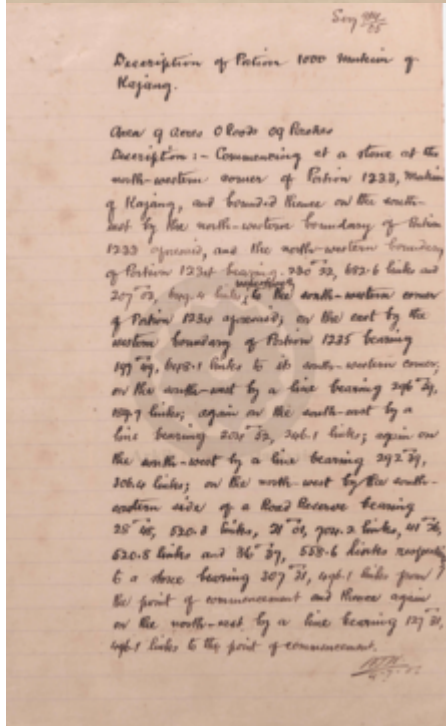 Description of Portion 1000 Mukim of
Kajang.
Area 9 Acres 0 Roods 09 Perches
Description:- Commencing at a stone at the
north-western corner of Portion 1233, Mukim
of Kajang, and bounded thence on the south-
east by the north-western boundary of Portion
1233 aforesaid, and the north-western boundary
of Portion 1234 bearing 682.6 links and
links, respectively to the south-western corner
of Portion 1234 aforesaid; on the east by the
western boundary of Portion 1235 bearing
links to its south-western corner;
on the south-west by a line bearing
links; again on the south-east by a
line bearing 246.1 links; again on
the south-west by a line bearing
306.4 links; on the north-west by the south-
eastern side of a Road Reserve bearing
520.3 links, 704.2 links,
520.8 links and 558.6 links
to a stone bearing 496.1 links from
the point of commencement and thence again
on the north-west by a line bearing
496.1 links to the point of commencement.